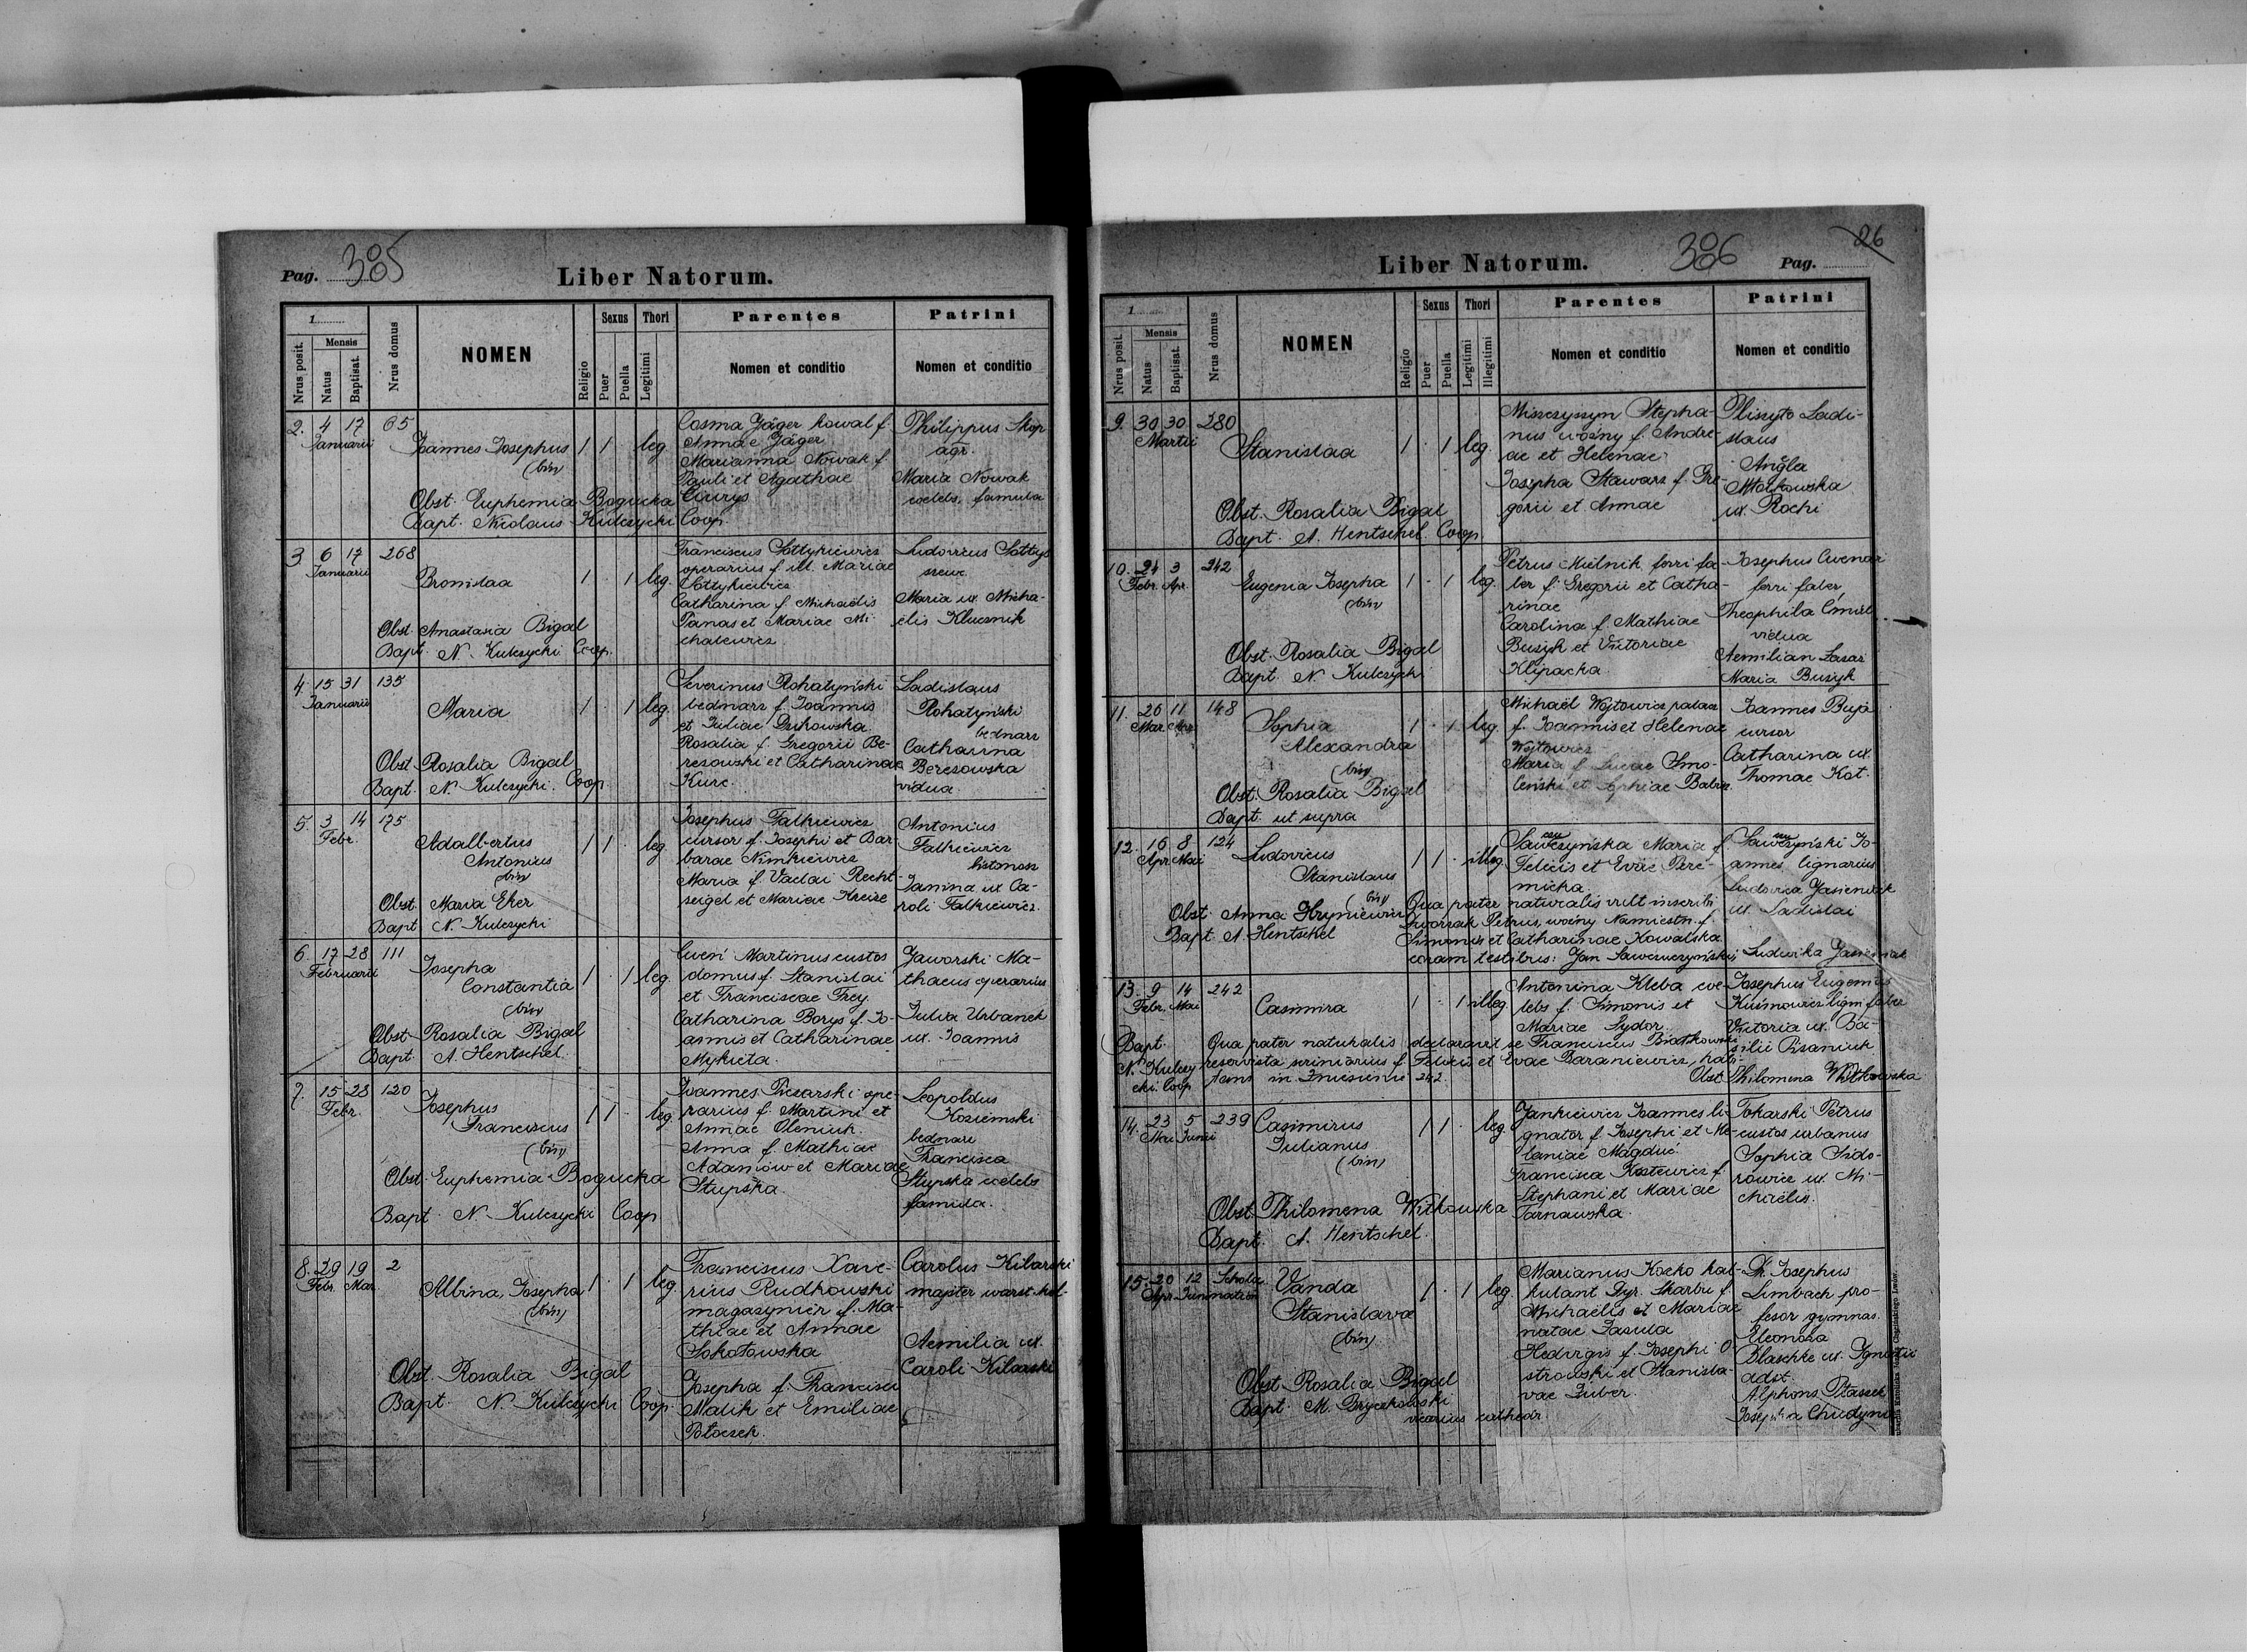 Pag. 305
Liber Natorum.
1
Nrus posit.
Mensis
Natus
Baptisat.
Nrus domus
NOMEN
Religio
Sexus
Puer
Puella
Thori
Legitimi
Parentes
Nomen et conditio
Patrini
Nomen et conditio
2. 4 17 65
Januarii
Joannes Josephus
(bin)
1 1 · leg
Cosma Jäger kowal f.
Annae Jäger
Marianna Nowak f.
Pauli et Agathae
Philippus Skop
agr.
Maria Nowak
coelebs, famula
Obst. Euphemia Bogucka
Bapt. Nicolaus Kulczycki Coop.
3 6 17 268
Januarii
Bronislaa
1 · 1 leg.
Franciscus Sottykiewicz
operarius f. ill. Mariae
Sottykiewicz
Catharina f. Michaëlis
Panas et Mariae Mi-
chalewicz
Ludovicus Sottys
szewc.
Maria ux. Micha-
elis Klucznik
Obst. Anastasia Bigal
Bapt. N. Kulczycki Coop.
4. 15 31 135
Januarii
Maria
1 · 1 leg.
Severinus Rohatyński
bednarz f. Joannis
et Juliae Dzikowska
Rosalia f. Gregorii Be-
rezowski et Catharinae
Kurc.
Ladislaus
Rohatyński
bednarz
Catharina
Berezowska
vidua
Obst. Rosalia Bigal
Bapt. N. Kulczycki. Coop
5. 3 14 175
Febr.
Adalbertus
Antonius
bin
1 1 · leg
Josephus Falkiewicz
cursor f. Josephi et Bar
barae Nimkiewicz
Maria f. Vaclai Recht-
seigel et Mariae Kreize
Antonius
Falkiewicz
Janina ux Ca-
roli Falkiewicz.
Obst. Maria Eker
Bapt N. Kulczycki
6 17 28 111
Februarii
Josepha
Constantia
(bin)
1 · 1 leg.
Cwen Martinus custos
domus f. Stanislai
et Franciscae Frey.
Catharina Borys f. Jo-
annis et Catharinae
Mykieta.
Jaworski Ma-
thaeus operarius
Julia Urbanek
ux. Joannis
Obst Rosalia Bigal
Bapt. A. Hentschel.
7. 15 28 120
Febr.
Josephus
Franciscus
(bin)
1 1 · leg.
Joannes Piesarski ope-
rarius f. Martini et
Annae Oleniuk.
Anna f. Mathiae
Adamów et Mariae
Stupska.
Leopoldus
Koziemski
bednarz
Francisca
Stupska coelebs
famula.
Obst. Euphemia Bogucka
Bapt N. Kulczycki Coop.
8. 29 19 2
Febr. Mar.
Albina, Josepha
(bin)
1 · 1 leg.
Franciscus Xave-
rius Rudkowski
magazynier f. Ma-
thiae et Annae
Sokołowska
Josepha f. Francisci
Malik et Emiliae
Potoczek.
Carolus Kilarski
majster warst. kol.
Aemilia ux.
Caroli Kilarski
Obst. Rosalia Bigal
Bapt. N. Kulczycki Coop.
Liber Natorum.
306 Pag. 26
1
Nrus posit.
Mensis
Natus
Baptisat.
Nrus domus
NOMEN
Religio
Sexus
Puer
Puella
Thori
Legitimi
Illegitimi
Parentes
Nomen et conditio
Patrini
Nomen et conditio
9. 30 30 280
Martii
Stanislaa
1 · 1 leg.
Misszyszyn Stepha-
nus woźny f. Andre-
ae et Helenae
Josepha Stawarz f. Gre-
gorii et Annae
Pliszyto Ladi-
slaus
Angla
ux. Rochi
Obst. Rosalia Bigal
Bapt. A. Hentschel. Coop.
10. 24 3 242
Febr. Apr.
Eugenia Josepha
(bin)
1 · 1 leg.
Petrus Mielnik ferri fa-
ber f. Gregorii et Catha-
rinae
Carolina f. Mathiae
Buzyk et Victoriae
Klipacka.
Josephus Cwenar
ferri faber
Theophila
vidua
Aemilian Lazar
Maria Buzyk
Obst. Rosalia Bigal
Bapt. N. Kulczycki
11. 26 11 148
Mar Apr
Sophia
Alexandra
(bin)
1 · 1 leg.
Michaël Wojtowicz
f. Joannis et Helenae
Wojtowicz
Maria f. Lucae Smo-
leński et Sophiae Babin
Joannes Buja
cursor
Catharina ux.
Thomae Kot.
Obst. Rosalia Bigal
Bapt. ut supra
12. 16 8 124
Apr Mai
Ludovicus
Stanislaus
(bin)
1 1 · illeg
Sawczyńska Maria f.
Felicis et Evae Pere-
micka.
Sawczyński Jo-
annes lignarius
Ludovica Jasieniak
ux. Ladislai
Obst. Anna Hryniewicz
Bapt A. Hentschel
Qua pater naturalis vult inscribi
Dworzak Petrus, woźny Namiestn. f.
Simonis et Catharinae Kowalska.
coram testibus: Jan Sawczuczyński, Ludwika Jasieniak
13. 9 14 242
Febr. Mai
Casimira
1 · 1 illeg.
Antonina Kleba coe-
lebs f. Simonis et
Mariae Sydor.
Josephus Eugenius
Kusmowicz lign faber
Victoria ux. Ba-
silii Pisaniuk
Bapt. Qua pater naturalis declaravit se Franciscus Białkowski
N. Kulczy reservista scriniarius f. Felicis et Evae Baraniewicz, habi-
cki Coop tans in Zniesienie 242.
Obst. Philomena Witkowska
14. 23 5 239
Mai Junii
Casimirus
Julianus
(bin)
1 1 · leg
Jankiewicz Joannes li-
gnator f. Josephi et Me-
laniae Magduć.
Francisca Kostewicz f.
Stephani et Mariae
Tarnawska.
Tokarski Petrus
custos urbanus
Sophia Sido-
rowicz ux. Mi-
chaëlis.
Obst. Philomena Witkowska
Bapt. A. Hentschel.
15. 20 12 Schola
Apr. Jun
Vanda
Stanislava
(bin)
1 · 1 leg.
Marianus Koczko kal-
kulant Dyr. Skarbu f.
Michaëlis et Mariae
natae Zasula
Hedvigis f. Josephi O-
strowski et Stanisla-
vae Zuber.
Dr. Josephus
Limbach pro-
fesor gymnas.
Eleonora
Blaschke ux. Ignatii
Alphons Ptaszek
Josepha Chudyni
Obst. Rosalia Bigal
Bapt. M. Bryczkowski
vicarius cathedr